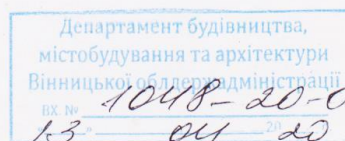 Департамент будівництва,
містобудування та архітектури
Вінницької облдержадміністрації
вх. № 1048-20-0
"13" 04 2020